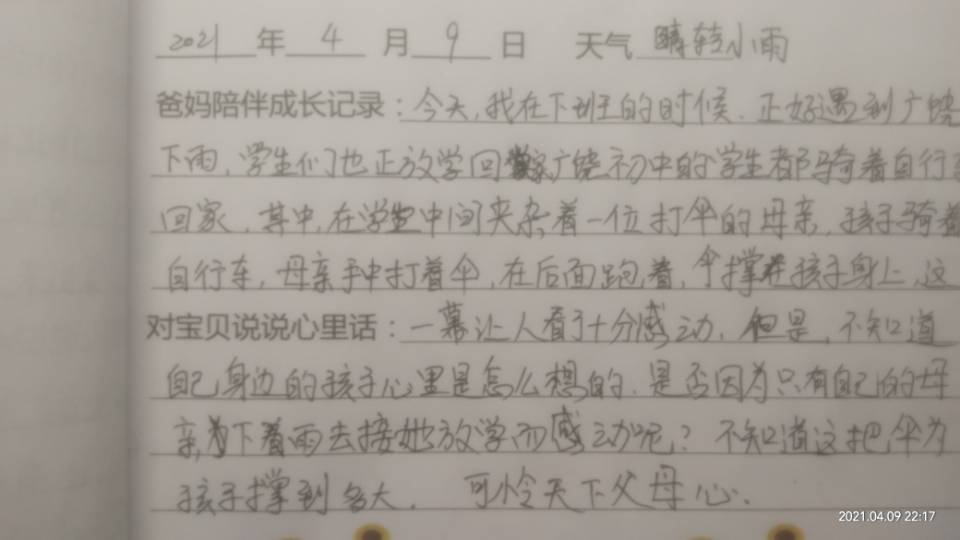 2021年4月9日 天气 晴转小雨
爸妈陪伴成长记录：今天，我在下班的时候，正好遇到广饶
下雨，学生们也正放学回家，广饶初中的学生都骑着自行车
回家，其中，在学生中间夹杂着一位打伞的母亲，孩子骑着
自行车，母亲手中打着伞，在后面跑着，伞撑在孩子身上，这
对宝贝说说心里话：一幕让人看了十分感动，但是，不知道
自己身边的孩子心里是怎么想的，是否因为只有自己的母
亲下着雨去接她放学而感动呢？不知道这把伞为
孩子撑到多大，可怜天下父母心。
2021.04.09 22:17